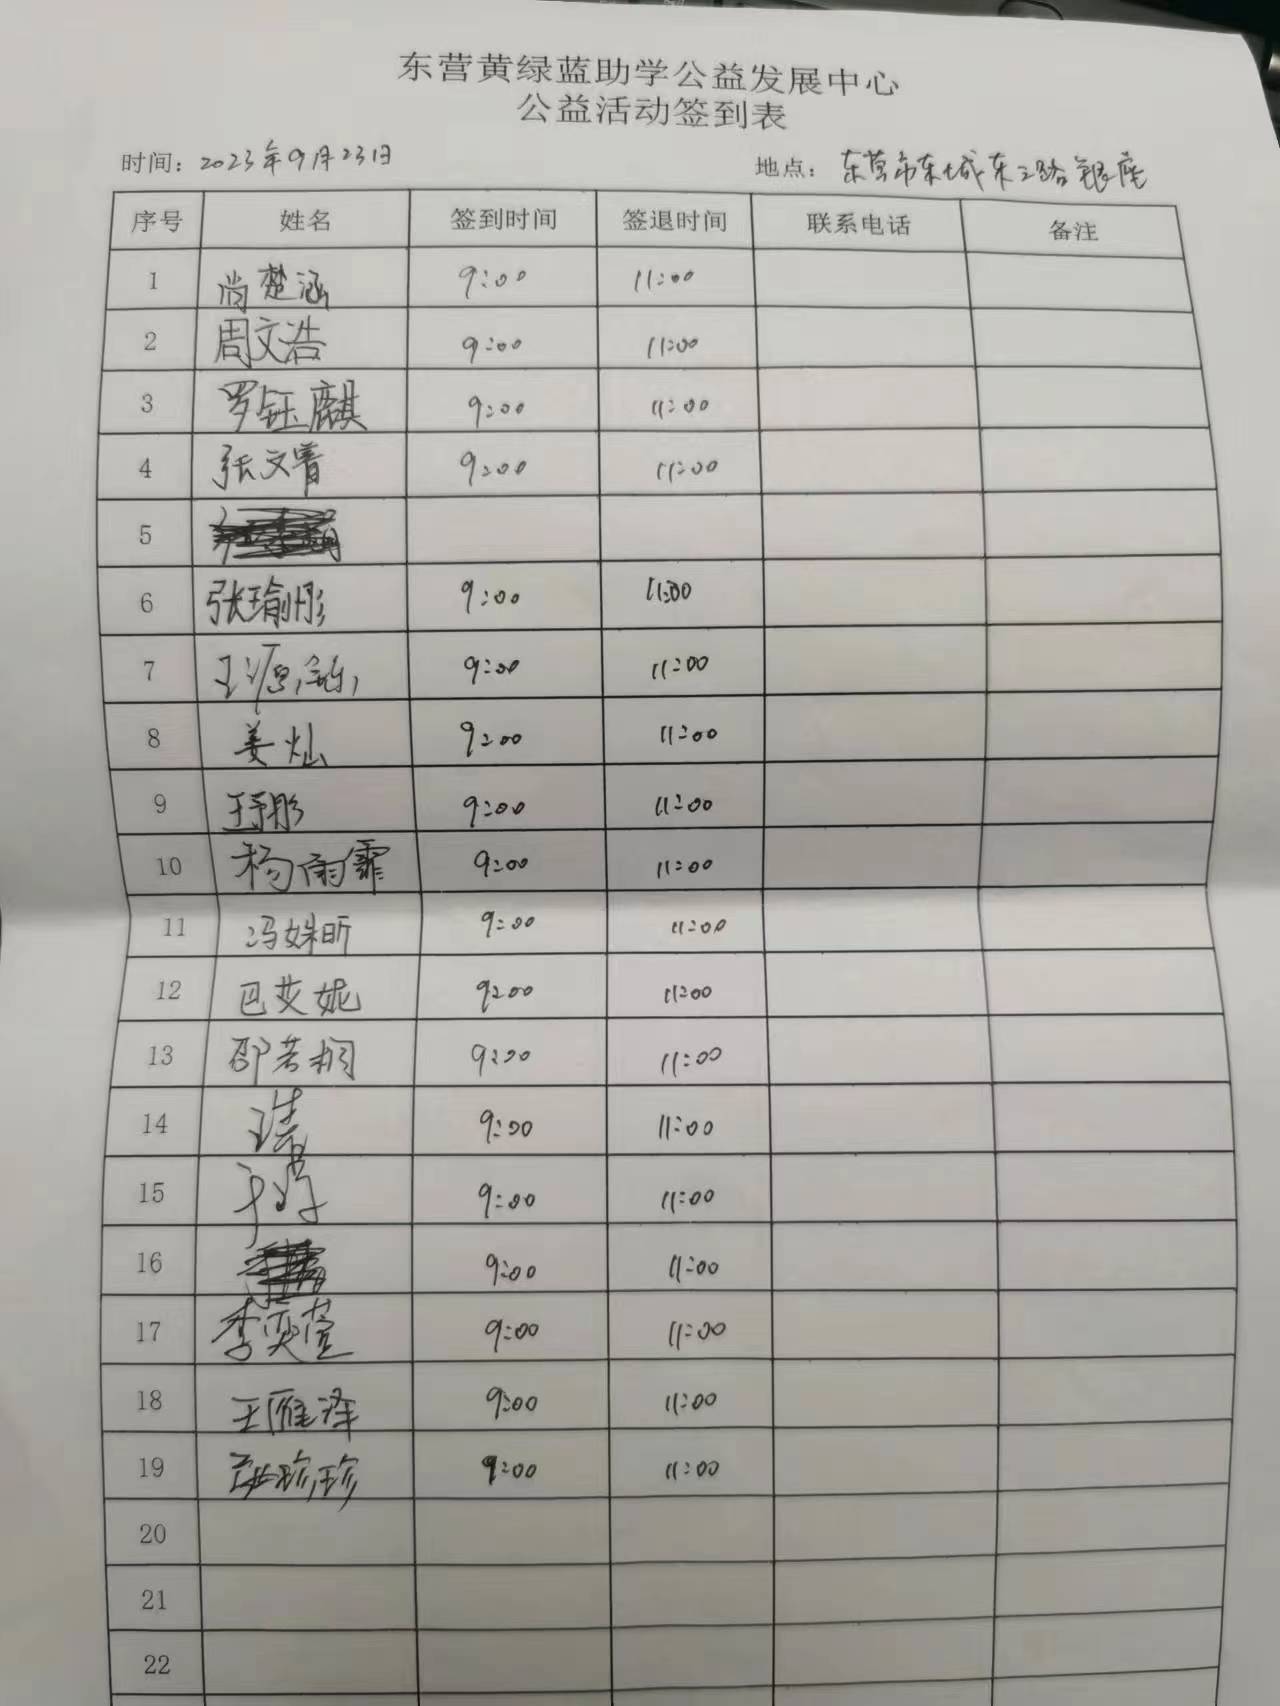 东营黄绿蓝助学公益发展中心
公益活动签到表
时间：2023年9月23日 地点：东营市东城东二路银座
序号 姓名 签到时间 签退时间 联系电话 备注
1 尚楚涵 9:00 11:00
2 周文浩 9:00 11:00
3 罗钰麒 9:00 11:00
4 张文睿 9:00 11:00
5
6 张瑜彤 9:00 11:00
7 王源 9:00 11:00
8 姜灿 9:00 11:00
9 王予彤 9:00 11:00
10 杨雨霏 9:00 11:00
11 冯姝昕 9:00 11:00
12 巴艾妮 9:00 11:00
13 邵若桐 9:00 11:00
14 9:00 11:00
15 9:00 11:00
16 9:00 11:00
17 李奕萱 9:00 11:00
18 王雁泽 9:00 11:00
19 珍珍 9:00 11:00
20
21
22